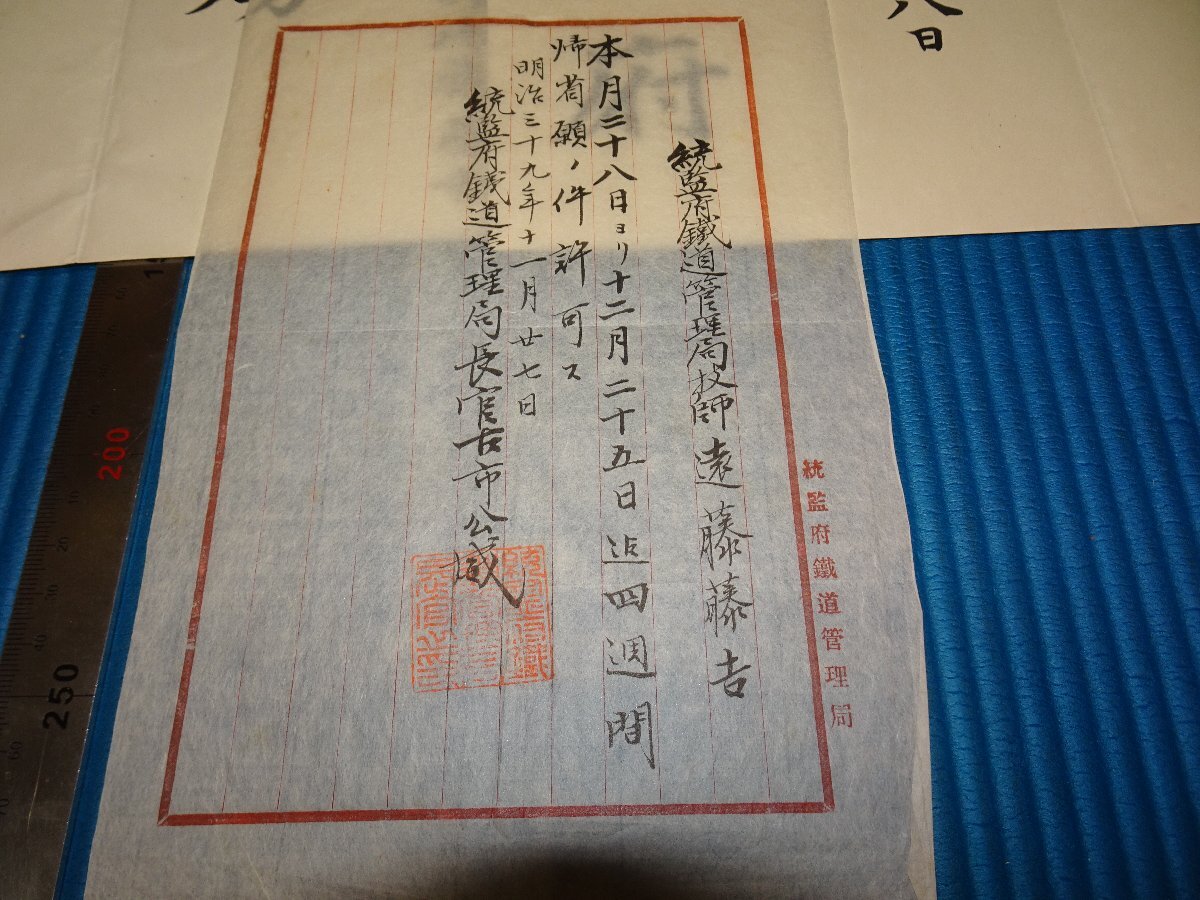 統監府鐵道管理局技師遠藤藤吉
本月二十八日ヨリ十二月二十五日迄四週間
帰省願ノ件許可ス
明治三十九年十一月廿七日
統監府鐵道管理局長官古市公威
統監府鐵道管理局
八日
200
250